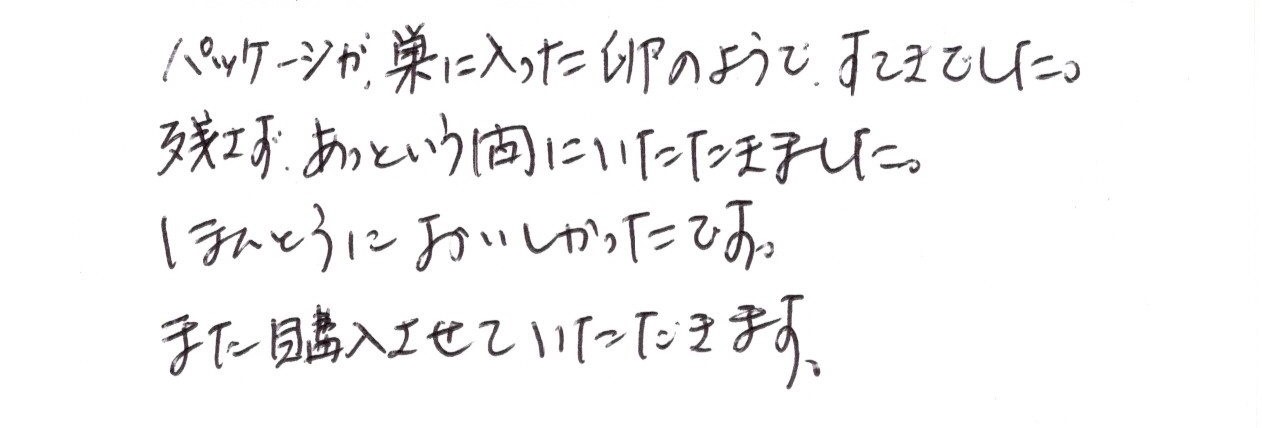 パッケージが、巣に入った卵のようで、すてきでした。
残さず、あっという間にいただきました。
ほんとうにおいしかったです。
また購入させていただきます。